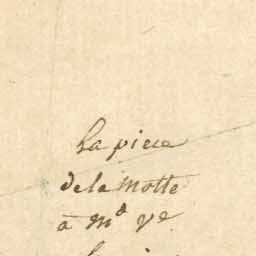 La piece
de la motte
à md ve